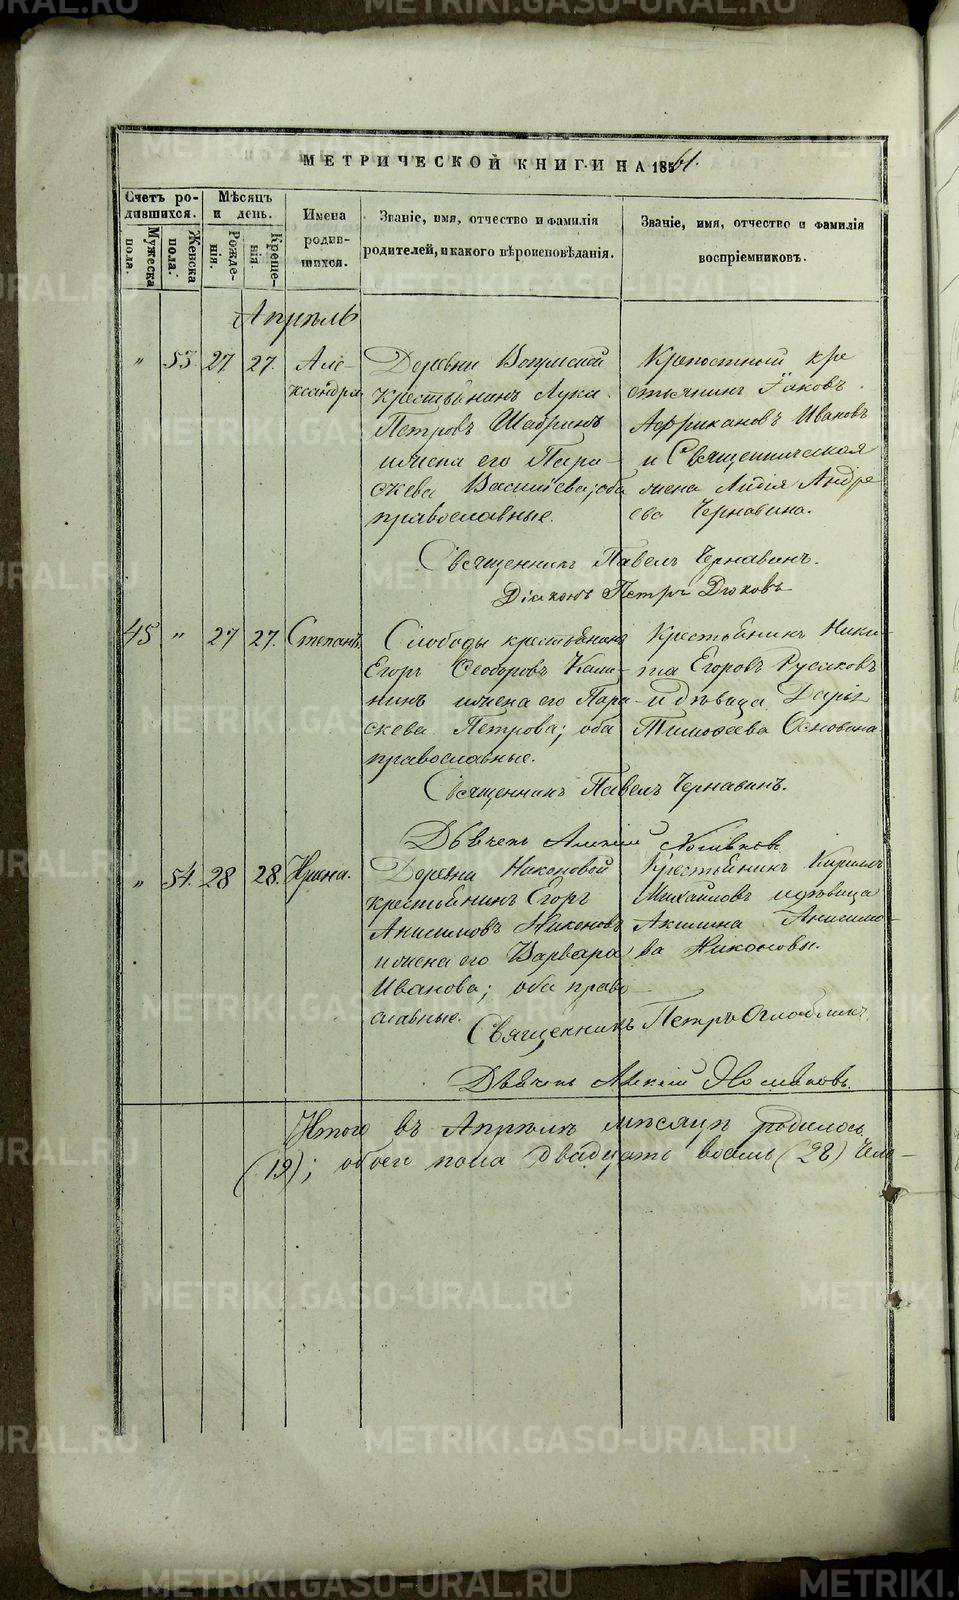 МЕТРИЧЕСКОЙ КНИГИ НА 1861.
Счетъ ро-
дившихся.
Мужеска
пола.
Женска
пола.
Мѣсяцъ
и день.
Рожде-
нія.
Креще-
нія.
Имена
родив-
шихся.
Званіе, имя, отчество и фамилія
родителей, и какого вѣроисповѣданія.
Званіе, имя, отчество и фамилія
воспріемниковъ.
Апрѣль
" 53. 27 27. Але-
ксандра
Деревни
крестьянинъ Лука
Петровъ Шабринъ
и жена его Пара-
скева Васильева; оба
православные.
Крепостный кре
стьянинъ Іаковъ
Африкановъ Ивановъ
и Священническая
жена Лидія Андре
ева Чернавина.
Священникъ Павелъ Чернавинъ.
Діаконъ Петръ Дюковъ
45 " 27 27. Степанъ
Слободы крестьянинъ
Егоръ Ѳеодоровъ Кали-
нинъ и жена его Пара-
скева Петрова; оба
православные.
Крестьянинъ Ники-
та Егоровъ Русаковъ
и дѣвица Дарія
Тимоѳеева Основина
Священникъ Павелъ Чернавинъ.
Дьячекъ Алексій
" 54. 28 28. Ирина.
Деревни Никоновой
крестьянинъ Егоръ
Анисимовъ Никоновъ
и жена его Варвара
Иванова; оба право
славные.
Крестьянинъ Кирилъ
Михайловъ и дѣвица
Акилина Анисимо-
ва Никоновы.
Священникъ Петръ Оглоблинъ
Дьячекъ Алексій
Итого въ Апрѣлѣ мѣсяцѣ родилось
(19); обоего пола двадцать восемь (28) чело-
METRIKI.GASO-URAL.RU